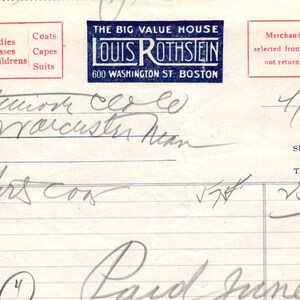 dies
sses
ildrens
Coats
Capes
Suits
THE BIG VALUE HOUSE
LOUIS ROTHSTEIN
600 WASHINGTON ST. BOSTON
Merchand
selected from
not return
Clo Co
Worcester Mass
S
T
Paid June